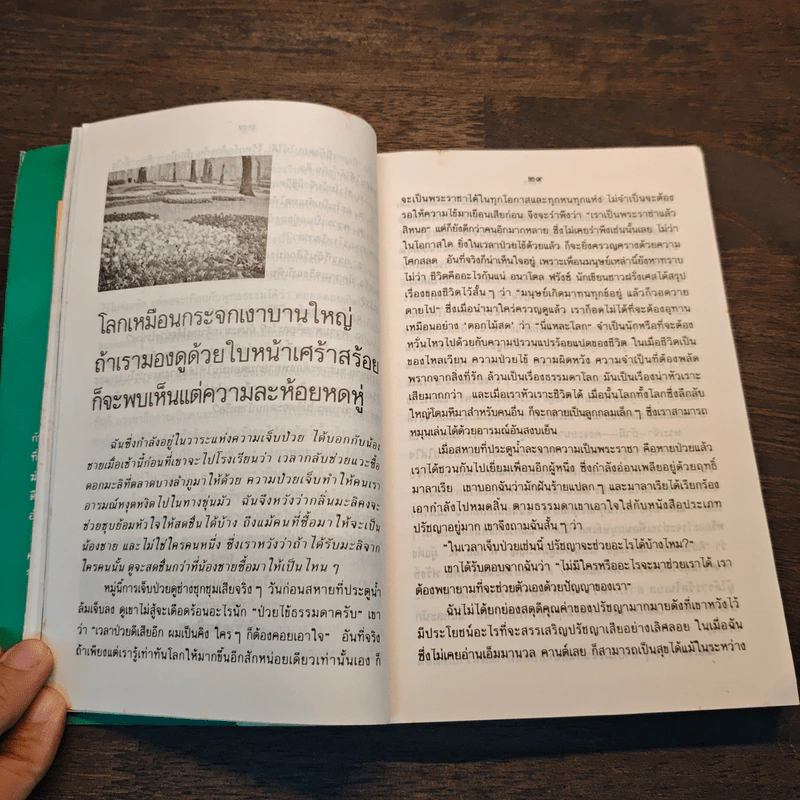 โลกเหมือนกระจกเงาบานใหญ่
ถ้าเรามองดูด้วยใบหน้าเศร้าสร้อย
ก็จะพบเห็นแต่ความละห้อยหดหู่
ฉันซึ่งกำลังอยู่ในวาระแห่งความเจ็บป่วย ได้บอกกับน้อง
ชายเมื่อเช้านี้ก่อนที่เขาจะไปโรงเรียนว่า เวลากลับช่วยแวะซื้อ
ดอกมะลิที่ตลาดบางลำภูมาให้ด้วย ความป่วยเจ็บทำให้คนเรา
อารมณ์หงุดหงิดไปในทางขุ่นมัว ฉันจึงหวังว่ากลิ่นมะลิคงจะ
ช่วยชุบย้อมหัวใจให้สดชื่นได้บ้าง ถึงแม้คนที่ซื้อมาให้จะเป็น
น้องชาย และไม่ใช่ใครคนหนึ่ง ซึ่งเราหวังว่าถ้าได้รับมะลิจาก
ใครคนนั้น ดูจะสดชื่นกว่าที่น้องชายซื้อมาให้เป็นไหน ๆ
หมู่นี้การเจ็บป่วยดูช่างชุกชุมเสียจริง ๆ วันก่อนสหายที่ประตูน้ำ
ล้มเจ็บลง ดูเขาไม่สู้จะเดือดร้อนอะไรนัก "ป่วยไข้ธรรมดาครับ" เขา
ว่า "เวลาป่วยดีเสียอีก ผมเป็นคิง ใคร ๆ ก็ต้องคอยเอาใจ" อันที่จริง
ถ้าเพียงแต่เรารู้เท่าทันโลกให้มากขึ้นอีกสักหน่อยเดียวเท่านั้นเอง ก็
๒๙
จะเป็นพระราชาได้ในทุกโอกาสและทุกหนทุกแห่ง ไม่จำเป็นจะต้อง
รอให้ความไข้มาเยือนเสียก่อน จึงจะรำพึงว่า "เราเป็นพระราชาแล้ว
สิหนอ" แต่ก็ยังดีกว่าคนอีกมากหลาย ซึ่งไม่เคยรำพึงเช่นนั้นเลย ไม่ว่า
ในโอกาสใด ยิ่งในเวลาป่วยไข้ด้วยแล้ว ก็จะยิ่งครวญครางด้วยความ
โศกสลด อันที่จริงก็น่าเห็นใจอยู่ เพราะเพื่อนมนุษย์เหล่านี้ยังหาทราบ
ไม่ว่า ชีวิตคืออะไรกันแน่ อนาโตล ฟรังซ์ นักเขียนชาวฝรั่งเศสได้สรุป
เรื่องของชีวิตไว้สั้น ๆ ว่า "มนุษย์เกิดมาทนทุกข์อยู่ แล้วก็วอดวาย
ตายไป" ซึ่งเมื่อนำมาใคร่ครวญดูแล้ว เราก็อดไม่ได้ที่จะต้องอุทาน
เหมือนอย่าง 'ดอกไม้สด' ว่า "นี่แหละโลก" จำเป็นนักหรือที่จะต้อง
หวั่นไหวไปด้วยกับความปรวนแปรบ่อยแปดของชีวิต ในเมื่อชีวิตเป็น
ของไหลเวียน ความป่วยไข้ ความผิดหวัง ความจำเป็นที่ต้องพลัด
พรากจากสิ่งที่รัก ล้วนเป็นเรื่องธรรมดาโลก มันเป็นเรื่องน่าหัวเราะ
เสียมากกว่า และเมื่อเราหัวเราะชีวิตได้ เมื่อนั้นโลกทั้งโลกซึ่งลึกลับ
ใหญ่โตมหึมาสำหรับคนอื่น ก็จะกลายเป็นลูกกลมเล็ก ๆ ซึ่งเราสามารถ
หมุนเล่นได้ด้วยอารมณ์อันสงบเย็น
เมื่อสหายที่ประตูน้ำละจากความเป็นพระราชา คือหายป่วยแล้ว
เราได้ชวนกันไปเยี่ยมเพื่อนอีกผู้หนึ่ง ซึ่งกำลังอ่อนเพลียอยู่ด้วยฤทธิ์
มาลาเรีย เขาบอกฉันว่ามักฝันร้ายแปลก ๆ และมาลาเรียได้เรียกร้อง
เอากำลังไปหมดสิ้น ตามธรรมดาเขาเอาใจใส่กับหนังสือประเภท
ปรัชญาอยู่มาก เขาจึงถามฉันสั้น ๆ ว่า
"ในเวลาเจ็บป่วยเช่นนี้ ปรัชญาจะช่วยอะไรได้บ้างไหม?"
เขาได้รับตอบจากฉันว่า "ไม่มีใครหรืออะไรจะมาช่วยเราได้ เรา
ต้องพยายามที่จะช่วยตัวเองด้วยปัญญาของเรา"
ฉันไม่ได้ยกย่องสดุดีคุณค่าของปรัชญามากมายดังที่เขาหวังไว้
มีประโยชน์อะไรที่จะสรรเสริญปรัชญาเสียอย่างเลิศลอย ในเมื่อฉัน
ซึ่งไม่เคยอ่านเอ็มมานวล คานต์เลย ก็สามารถเป็นสุขได้แม้ในระหว่าง